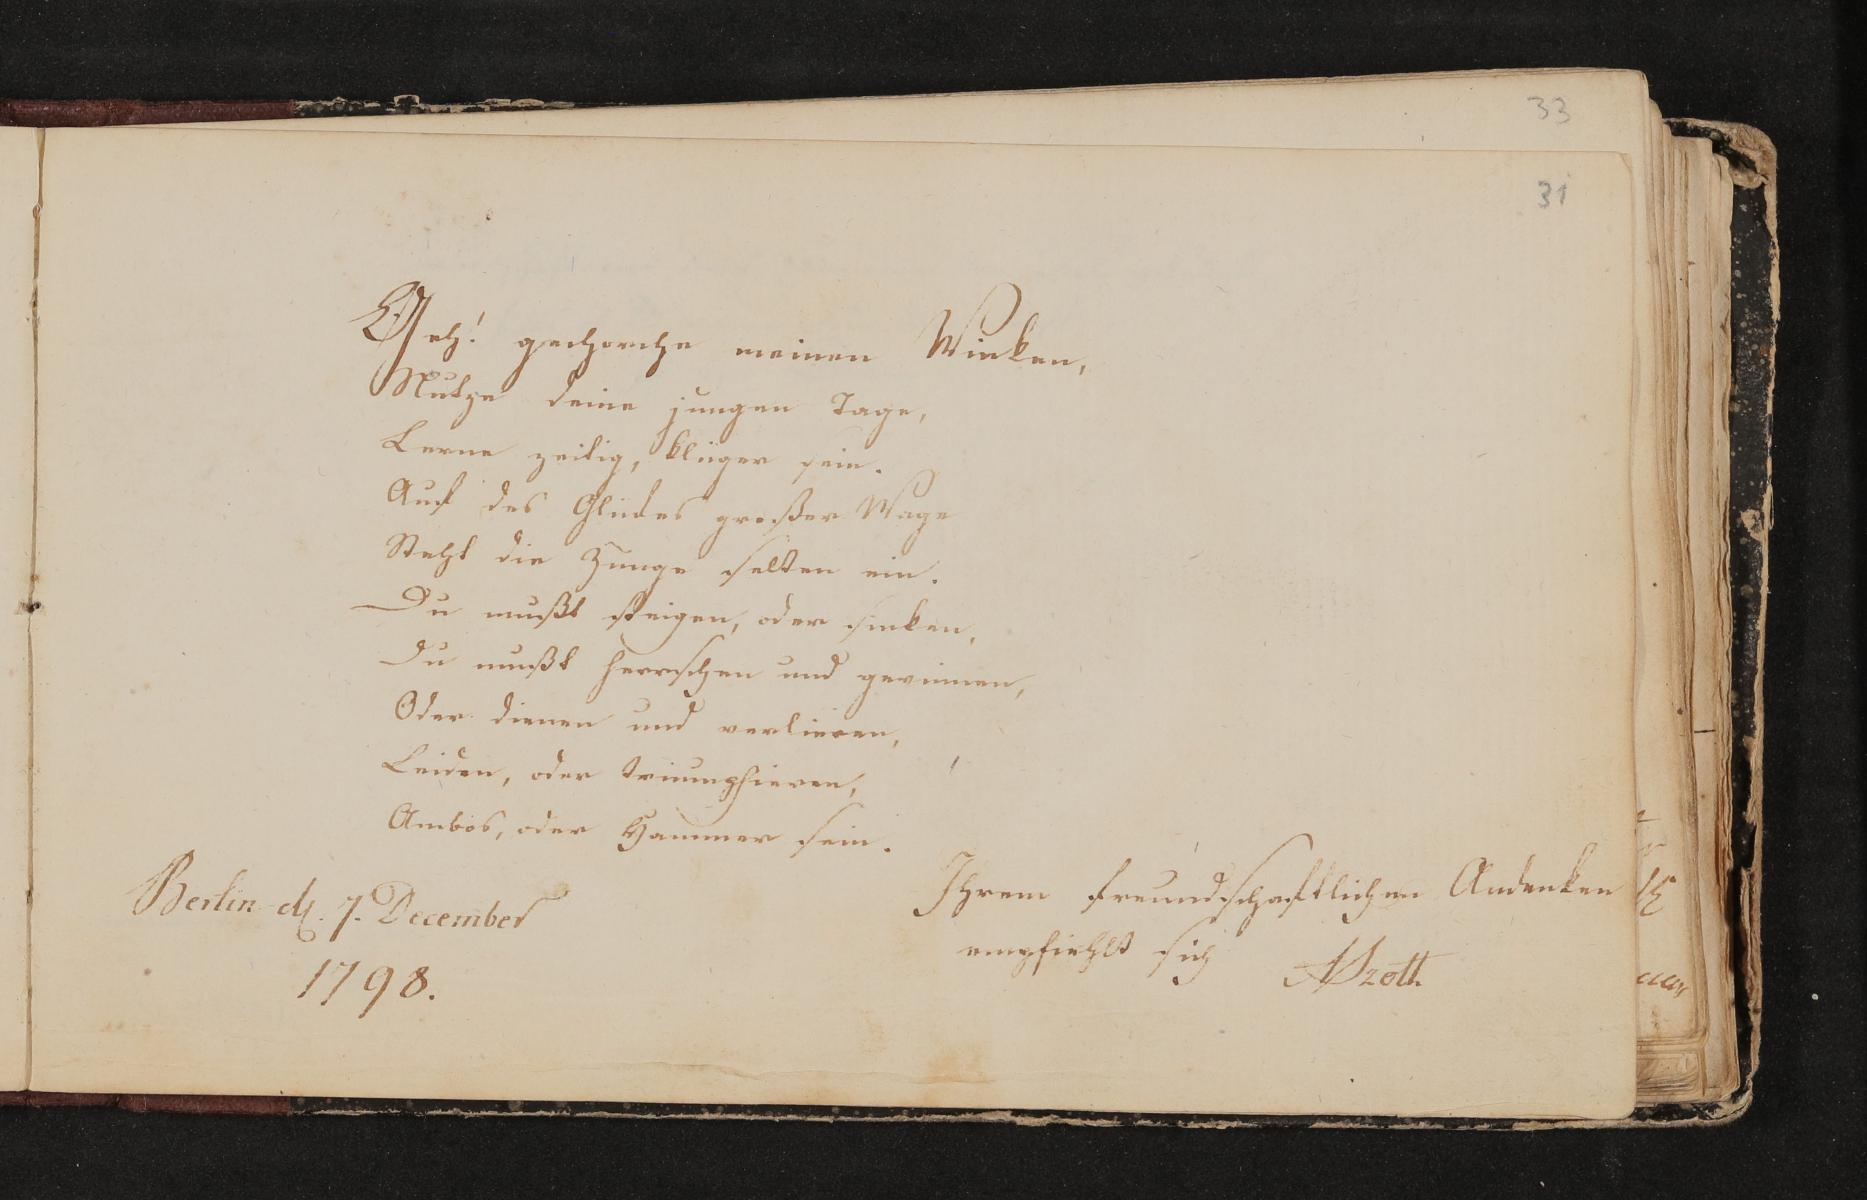 33
31
Geh! gehorche meinen Winken,
Nutze deine jungen Tage,
Lerne zeitig, klüger sein.
Auf des Glückes großer Wage
Steht die Zunge selten ein.
Du mußt steigen, oder sinken,
Du mußt herrschen und gewinnen,
Oder dienen und verlieren,
Leiden, oder triumphieren,
Ambos, oder Hammer sein.
Berlin d. 7. December
1798.
Ihrem freundschaftlichen Andenken
empfiehlt sich